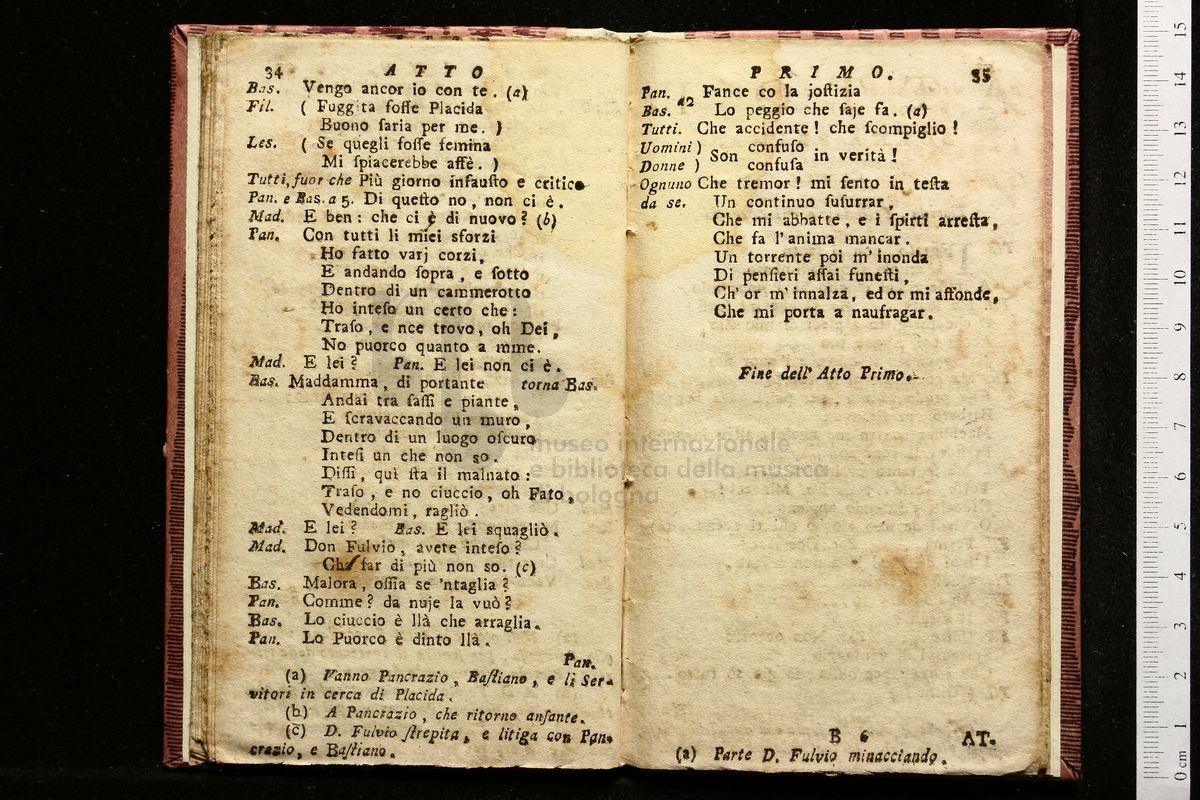 34 ATTO
Bas. Vengo ancor io con te. (a)
Fil. ( Fuggita foſſe Placida
Buono ſaria per me. )
Les. ( Se quegli foſſe femina
Mi ſpiacerebbe affè. )
Tutti, fuor che Più giorno infauſto e critico
Pan. e Bas. a 5. Di queſto no, non ci è.
Mad. E ben: che ci è di nuovo? (b)
Pan. Con tutti li miei sforzi
Ho fatto varj corzi,
E andando ſopra, e ſotto
Dentro di un cammerotto
Ho inteſo un certo che:
Traſo, e nce trovo, oh Dei,
No puorco quanto a mme.
Mad. E lei? Pan. E lei non ci è.
Bas. Maddamma, di portante torna Bas.
Andai tra ſaſſi e piante,
E ſcravaccando un muro,
Dentro di un luogo oſcuro
Inteſi un che non so.
Diſſi, quì ſta il malnato:
Traſo, e no ciuccio, oh Fato,
Vedendomi, ragliò.
Mad. E lei? Bas. E lei squagliò.
Mad. Don Fulvio, avete inteſo?
Che far di più non so. (c)
Bas. Malora, oſſia se 'ntaglia?
Pan. Comme? da nuje la vuò?
Bas. Lo ciuccio è llà che arraglia.
Pan. Lo Puorco è dinto llà.
Pan.
(a) Vanno Pancrazio, Baſtiano, e li Ser-
vitori in cerca di Placida.
(b) A Pancrazio, che ritorno anſante.
(c) D. Fulvio ſtrepita, e litiga con Pan-
crazio, e Baſtiano.
PRIMO. 35
Pan. Fance co la joſtizia
Bas. a2 Lo peggio che ſaje fa. (a)
Tutti. Che accidente! che ſcompiglio!
Uomini ) Son confuſo in verità!
Donne ) confuſa
Ognuno Che tremor! mi ſento in teſta
da se. Un continuo ſuſurrar,
Che mi abbatte, e i ſpirti arreſta,
Che fa l'anima mancar.
Un torrente poi m'inonda
Di penſieri aſſai funeſti,
Ch'or m'innalza, ed or mi affonde,
Che mi porta a naufragar.
Fine dell' Atto Primo.
B 6 AT.
(a) Parte D. Fulvio minacciando.
museo internazionale
e biblioteca della musica
di bologna
15
14
13
12
11
10
9
8
7
6
5
4
3
2
1
0 cm